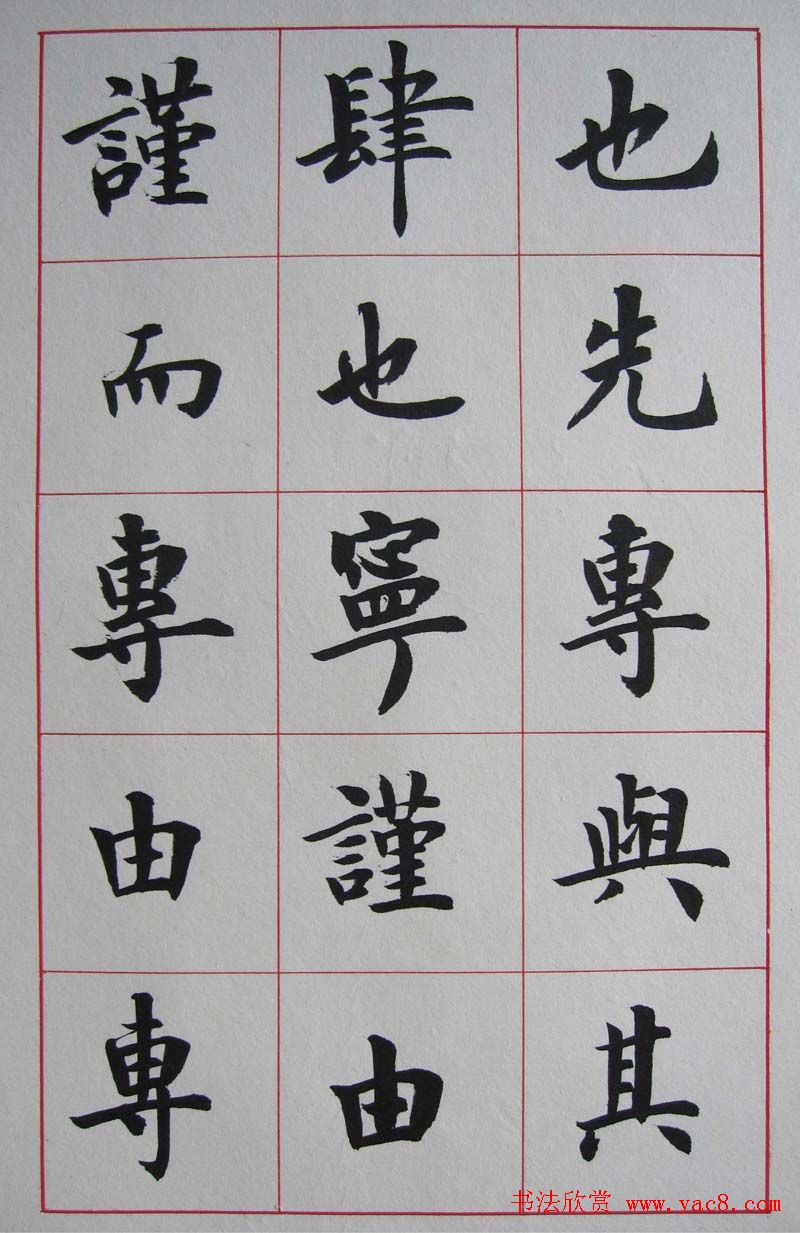 也先專與其
肆也寧謹由
謹而專由專
书法欣赏 www.yac8.com